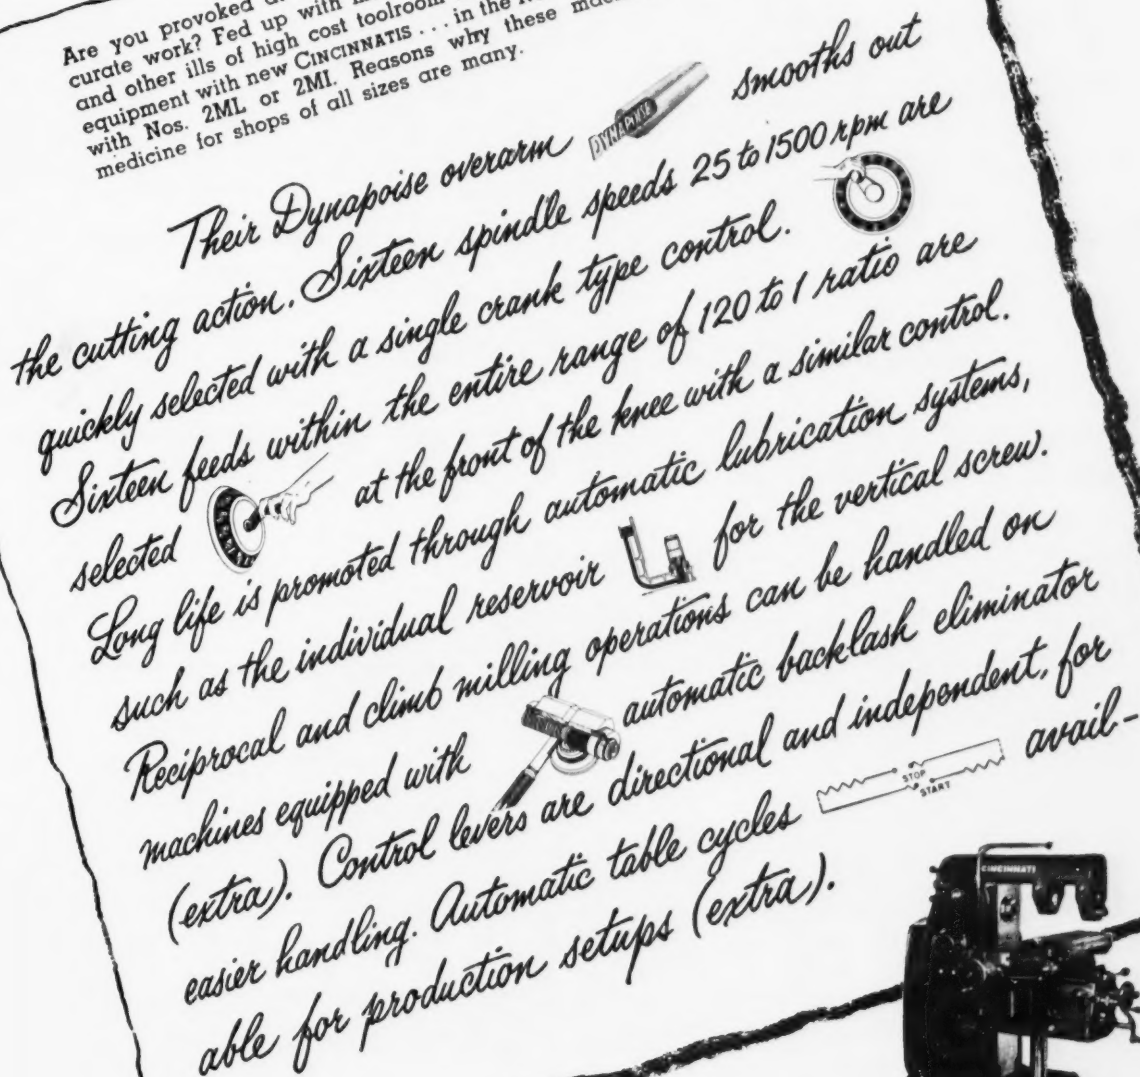 Are you provoked
curate work? Fed up with
and other ills of high cost toolroom
equipment with new CINCINNATIS . . . in the
with Nos. 2ML or 2MI. Reasons why these
medicine for shops of all sizes are many.
Their Dynapoise overarm DYNAPOISE smooths out
the cutting action. Sixteen spindle speeds 25 to 1500 rpm are
quickly selected with a single crank type control.
Sixteen feeds within the entire range of 120 to 1 ratio are
selected at the front of the knee with a similar control.
Long life is promoted through automatic lubrication systems,
such as the individual reservoir for the vertical screw.
Reciprocal and climb milling operations can be handled on
machines equipped with automatic backlash eliminator
(extra). Control levers are directional and independent, for
easier handling. Automatic table cycles STOP START avail-
able for production setups (extra).
CINCINNATI